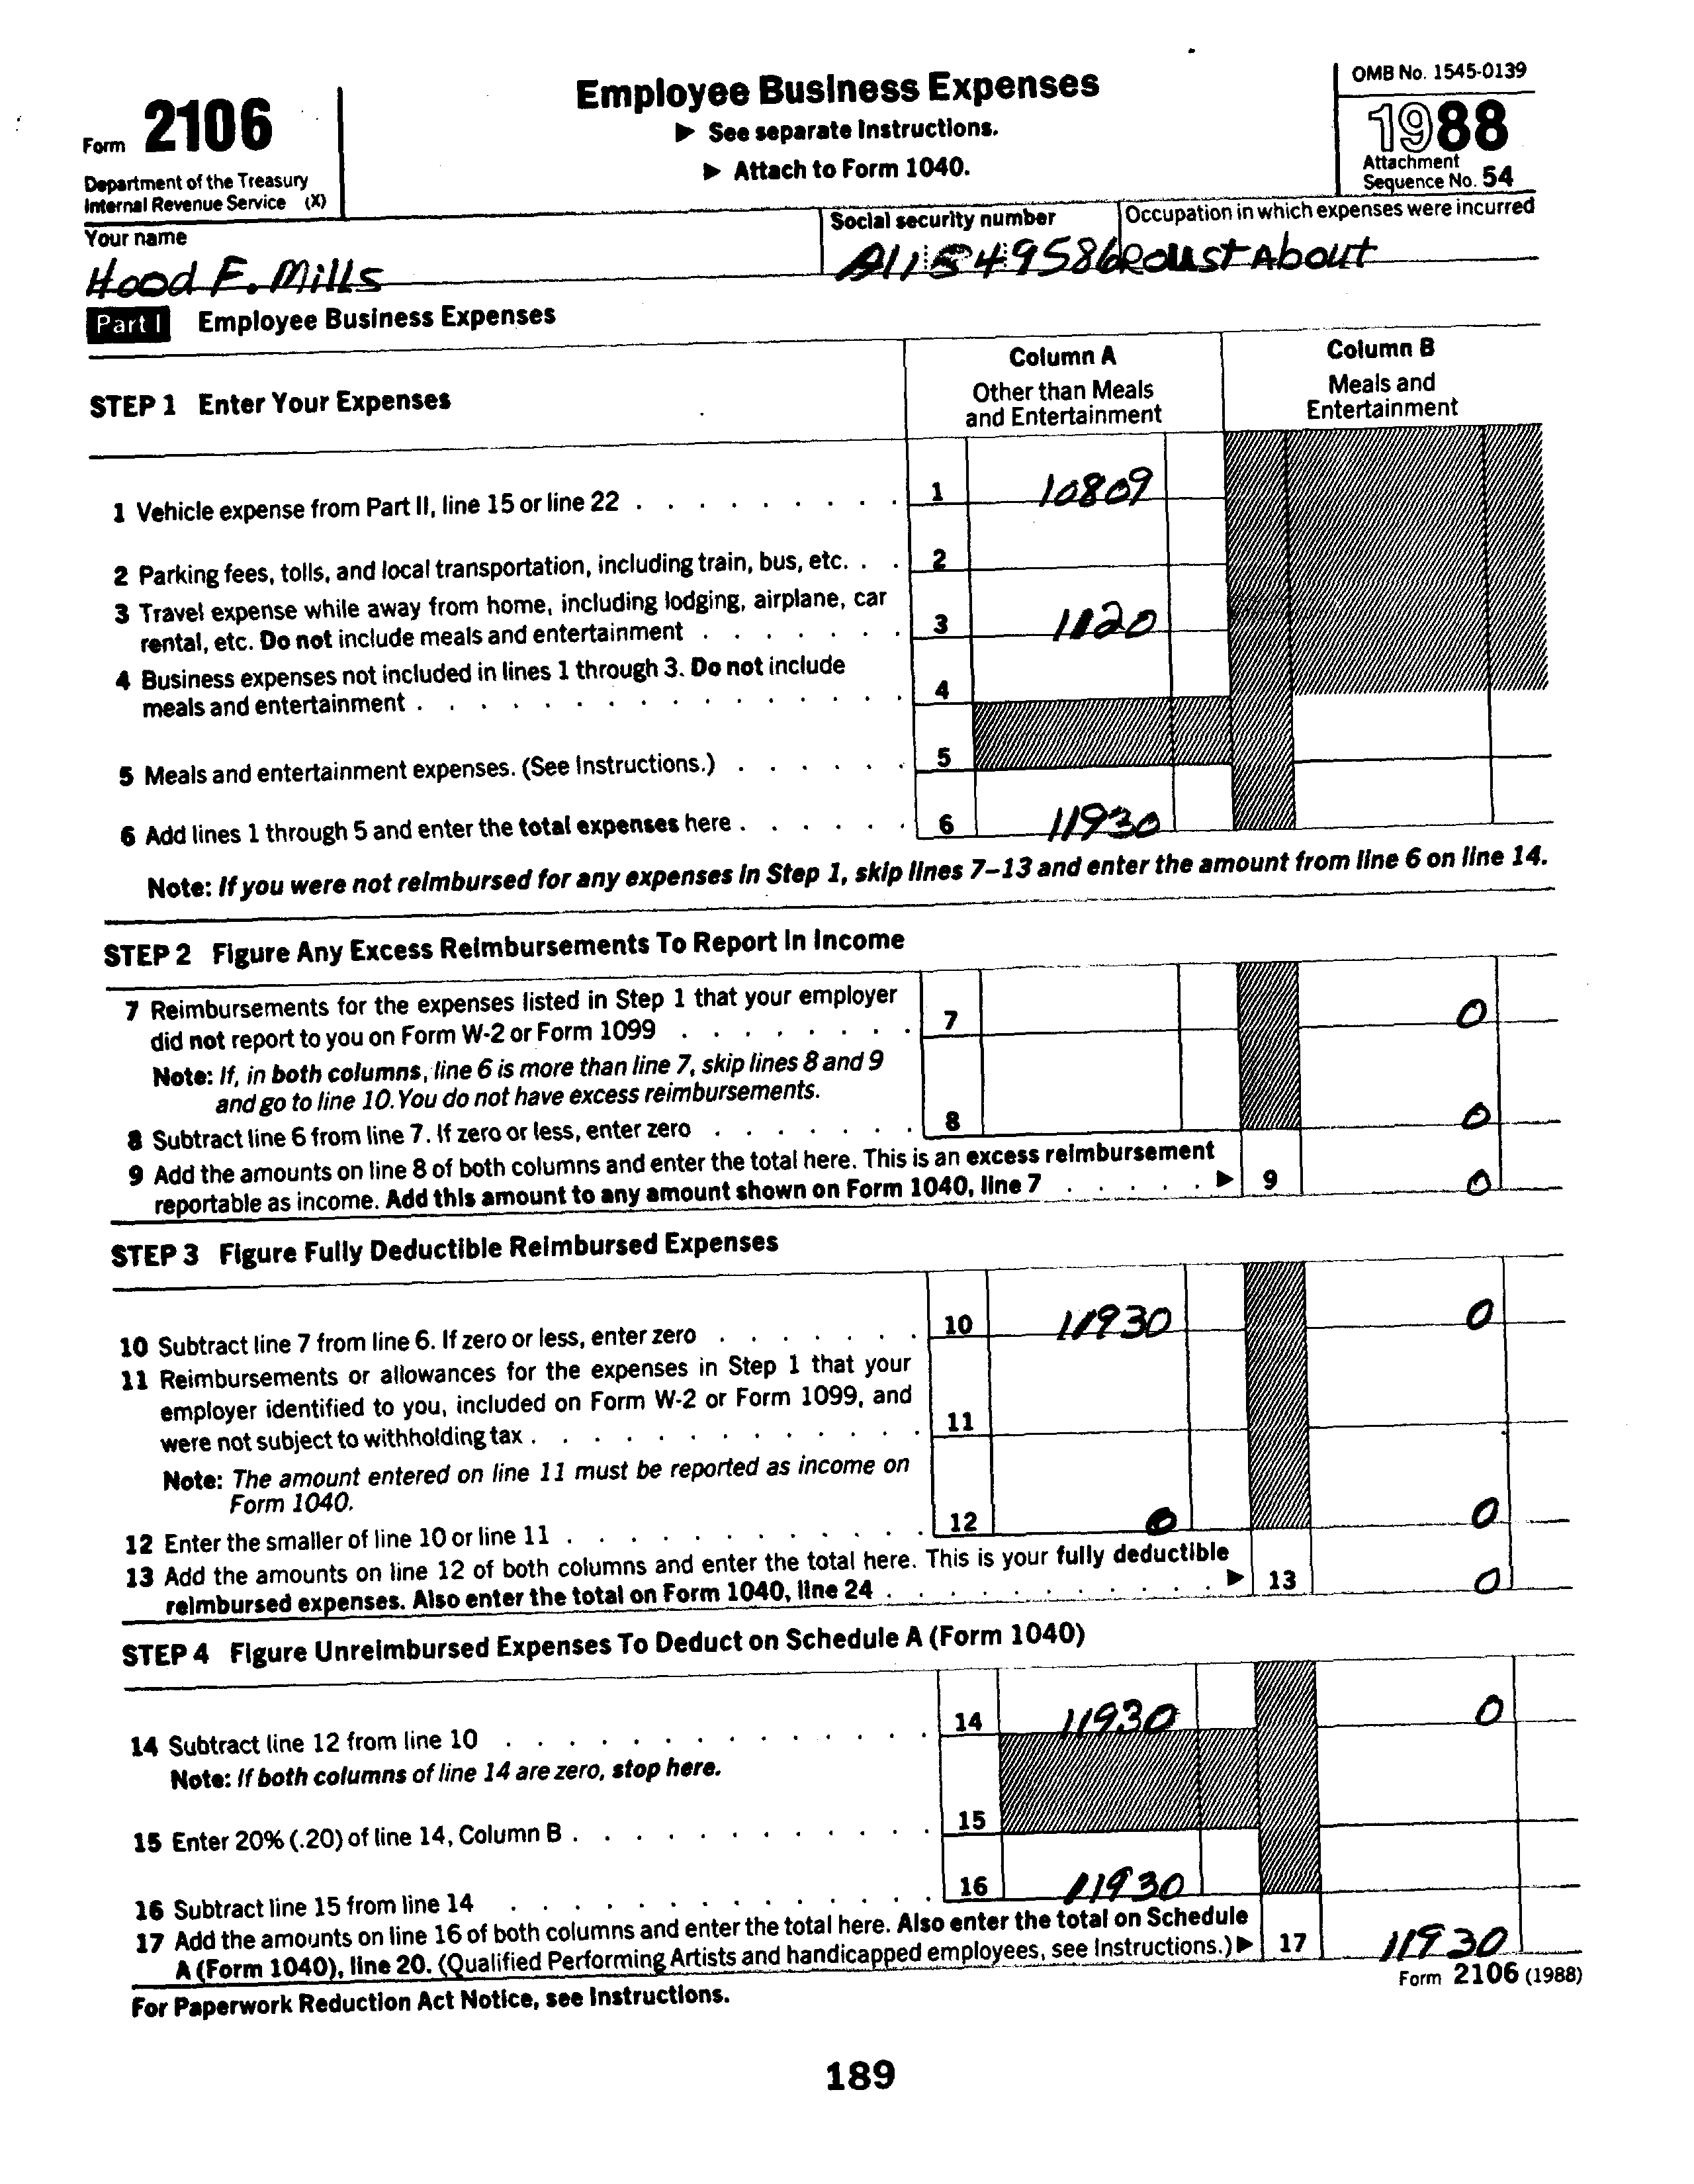 Form 2106
Department of the Treasury
Internal Revenue Service (X)
Employee Business Expenses
▶ See separate Instructions.
▶ Attach to Form 1040.
OMB No. 1545-0139
1988
Attachment
Sequence No. 54
Your name
Hood F. Mills
Social security number
Occupation in which expenses were incurred
Roust About
Part I Employee Business Expenses
STEP 1 Enter Your Expenses
Column A
Other than Meals
and Entertainment
Column B
Meals and
Entertainment
1 Vehicle expense from Part II, line 15 or line 22 . . . . . . . . . 1 10809
2 Parking fees, tolls, and local transportation, including train, bus, etc. . . 2
3 Travel expense while away from home, including lodging, airplane, car
rental, etc. Do not include meals and entertainment . . . . . . . 3 1120
4 Business expenses not included in lines 1 through 3. Do not include
meals and entertainment . . . . . . . . . . . . . . . . 4
5 Meals and entertainment expenses. (See Instructions.) . . . . . . 5
6 Add lines 1 through 5 and enter the total expenses here . . . . . . 6 11930
Note: If you were not reimbursed for any expenses in Step 1, skip lines 7–13 and enter the amount from line 6 on line 14.
STEP 2 Figure Any Excess Reimbursements To Report In Income
7 Reimbursements for the expenses listed in Step 1 that your employer
did not report to you on Form W-2 or Form 1099 . . . . . . . . 7 0
Note: If, in both columns, line 6 is more than line 7, skip lines 8 and 9
and go to line 10. You do not have excess reimbursements.
8 Subtract line 6 from line 7. If zero or less, enter zero . . . . . . . 8 0
9 Add the amounts on line 8 of both columns and enter the total here. This is an excess reimbursement
reportable as income. Add this amount to any amount shown on Form 1040, line 7 . . . . . ▶ 9 0
STEP 3 Figure Fully Deductible Reimbursed Expenses
10 Subtract line 7 from line 6. If zero or less, enter zero . . . . . . . 10 11930 0
11 Reimbursements or allowances for the expenses in Step 1 that your
employer identified to you, included on Form W-2 or Form 1099, and
were not subject to withholding tax . . . . . . . . . . . . . 11
Note: The amount entered on line 11 must be reported as income on
Form 1040.
12 Enter the smaller of line 10 or line 11 . . . . . . . . . . . . 12 0 0
13 Add the amounts on line 12 of both columns and enter the total here. This is your fully deductible
reimbursed expenses. Also enter the total on Form 1040, line 24 . . . . . . . . . . . ▶ 13 0
STEP 4 Figure Unreimbursed Expenses To Deduct on Schedule A (Form 1040)
14 Subtract line 12 from line 10 . . . . . . . . . . . . . . 14 11930 0
Note: If both columns of line 14 are zero, stop here.
15 Enter 20% (.20) of line 14, Column B . . . . . . . . . . . . 15
16 Subtract line 15 from line 14 . . . . . . . . . . . . . . 16 11930
17 Add the amounts on line 16 of both columns and enter the total here. Also enter the total on Schedule
A (Form 1040), line 20. (Qualified Performing Artists and handicapped employees, see Instructions.) ▶ 17 11930
For Paperwork Reduction Act Notice, see Instructions.
Form 2106 (1988)
189